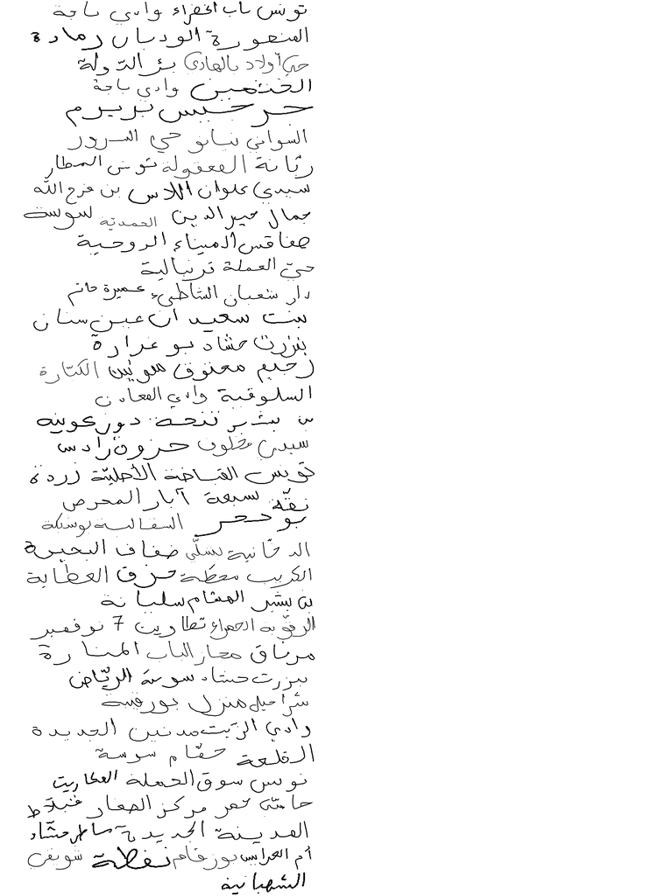 تونس باب الخضراء وادي باجة
المنصورة الوديان رمادة
حي أولاد بالهادي بئر التولة
الخثمين وادي باجة
جرجيس بريرم
السواني نيانو حي السرور
رنانة المعقولة تونس المطار
سيدي علوان اللاس بن فرج الله
جمال خير الدين الحمدية سوسة
صفاقس الميناء الروحية
حي العملة ترنبالية
دار شعبان الشاطئ عميرة حاتم
بنت سعيدان عين سنان
بنزرت حشاد بو غرارة
رحيم معتوق الكتارة
السلوقية وادي المعادن
بن بشير
سيدي مخلوف حزوة رادس
تونس القباضة الأصلية زردة
نقة سبعة آبار المحرص
بو حجر السفالة بوسكة
الدخانية يسلّي ضفاف البحيرة
الكريب محطة حزق العطاية
بن بشير الهشام سليانة
الرقوبة الحمراء تطاوين 7 نوفمبر
مرناق مجاز الباب المنارة
بنزرت حشاد سوسة الرياض
شراحيل منزل بورقيبة
وادي الزيت مدنين الجديدة
القلعة حمّام سوسة
تونس سوق الجملة العكاريت
مركز الصغار قبلاط
المدينة الجديدة ماطر حشاد
أم العرايس بوزقام نفطة
الشهبانية